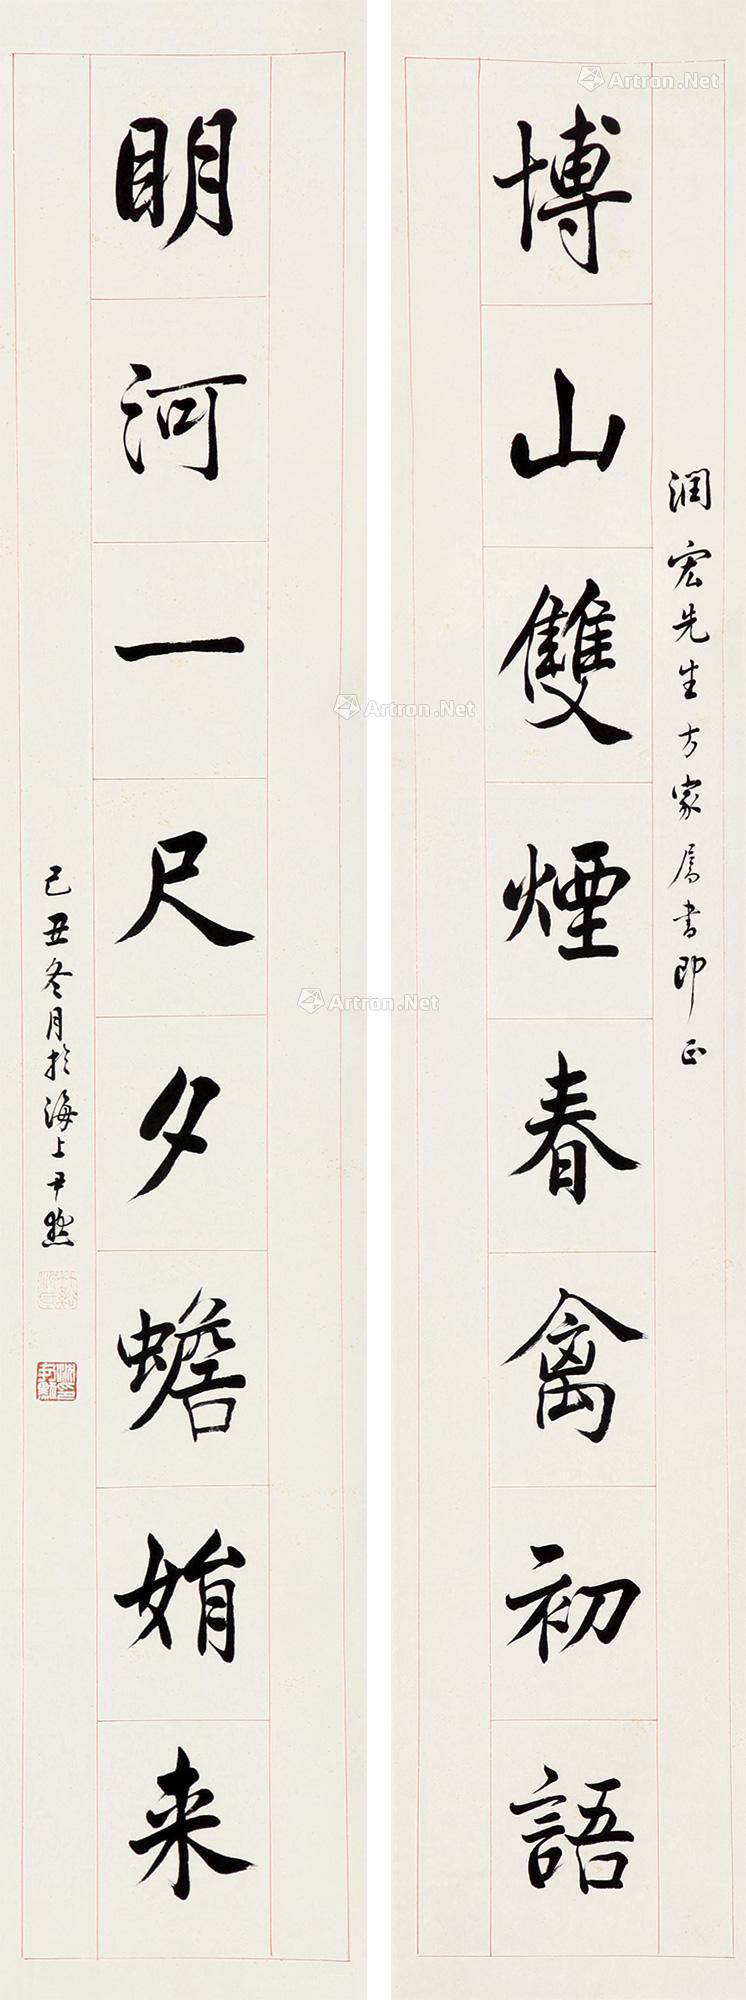 博山雙煙春禽初語
潤宏先生方家属書即正
明河一尺夕蟾娟来
己丑冬月於海上尹默
Artron.Net
Artron.Net
Artron.Net
Artron.Net